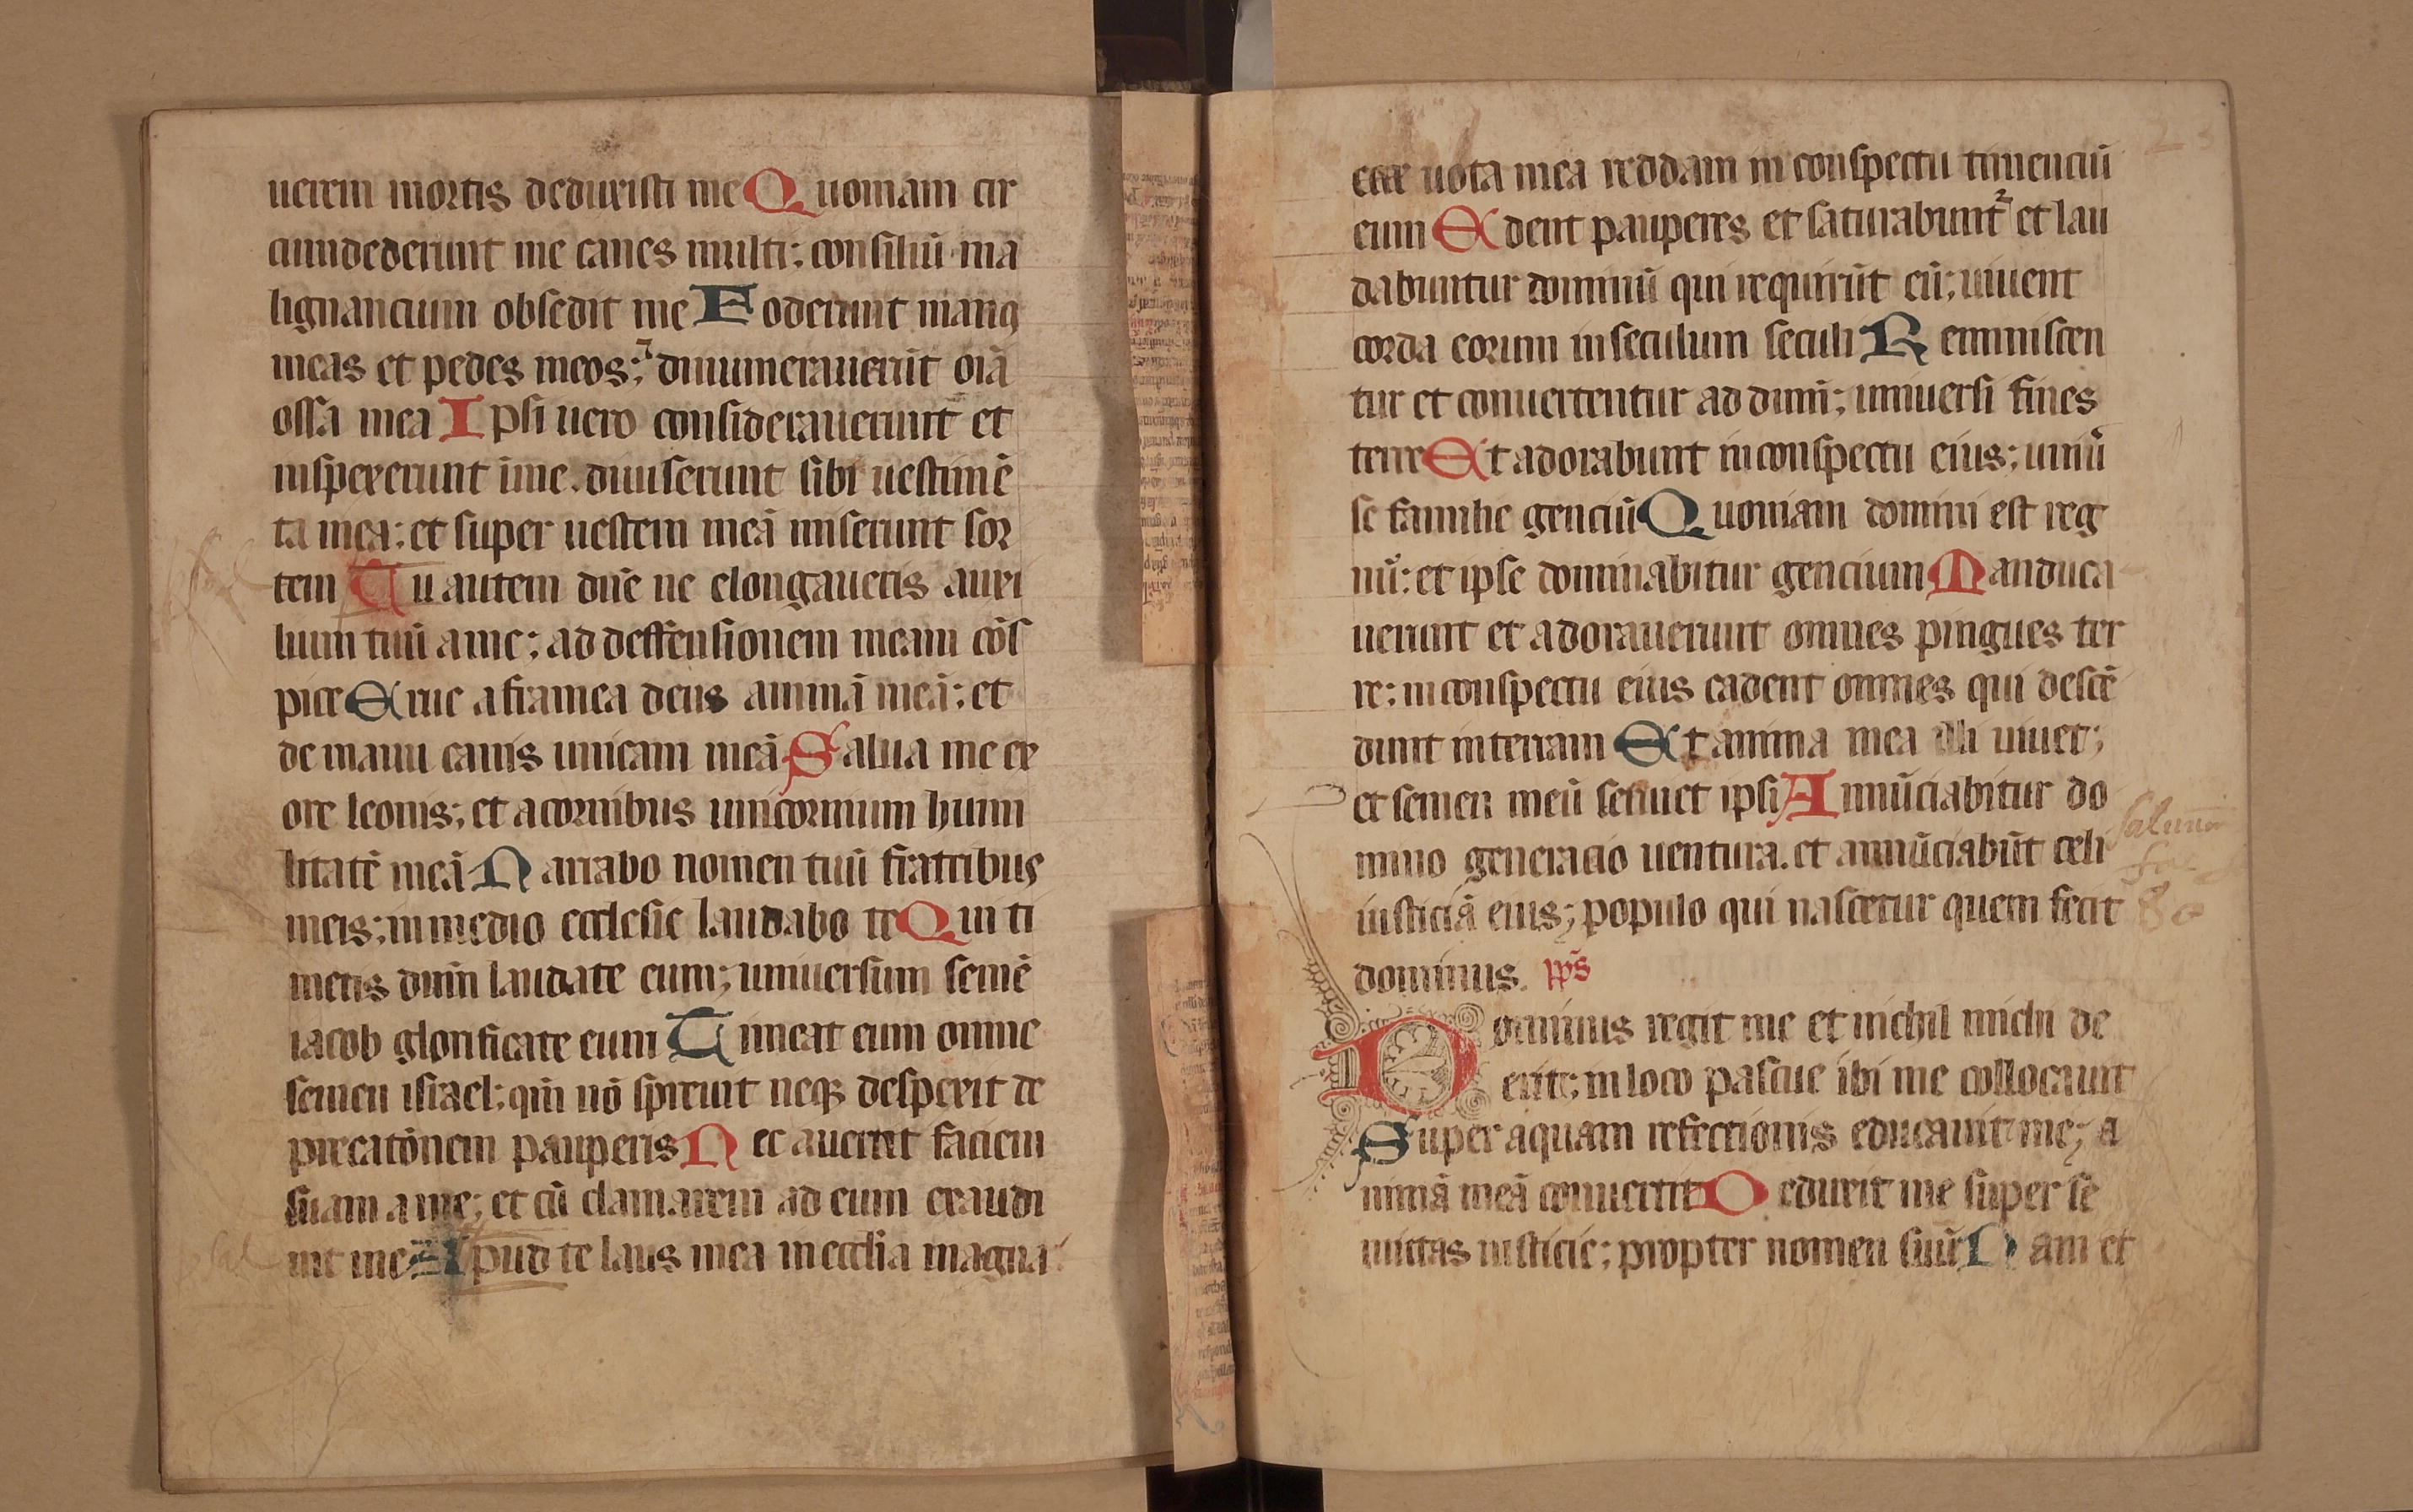 uerem mortis deduxisti me Quoniam cir
cumdederunt me canes multi; consiliū ma
lignancium obsedit me Foderunt manꝰ
meas et pedes meos; dinumerauerūt oīa
ossa mea Ipsi uero considerauerunt et
inspexerunt ime. diuiserunt sibi uestimē
ta mea; et super uestem meā miserunt sor
tem Tu autem dnē ne elongaueris auxi
lium tuū ame; ad deffensionem meam cōs
pice Erue aframea deus animā meā; et
de manu canis unicam meā Salua me ex
ore leonis; et acornibus unicornium humi
litatē meā Narrabo nomen tuū fratribus
meis; inmedio ecclesie laudabo te Qui ti
metis dnm̄ laudate eum; uniuersum semē
iacob glorificate eum Timeat eum omne
semen israel; qm̄ nō spreuit neqꝫ despexit de
precatōnem pauperis Nec auertit faciem
suam ame; et cū clamarem ad eum exaudi
uit me Apud te laus mea inecclīa magna
uota mea reddam in conspectu timenciū
eum Edent pauperes et saturabunt᷑ et lau
dabuntur dominū qui requirūt eū; uiuent
corda eorum inseculum seculi Reminiscen
tur et conuertentur ad dnm̄; uniuersi fines
terre Et adorabunt inconspectu eius; uniū
se familie genciū Quoniam domini est reg
nū; et ipse dominabitur gencium Manduca
uerunt et adorauerunt omnes pingues ter
re; inconspectu eius cadent omnes qui descē
dunt interram Et anima mea illi uiuet;
et semen meū seruiet ipsi Annūciabitur do
mino generacio uentura. et annūciabūt celi
iusticiā eius; populo qui nascetur quem fecit
dominus. pp̄s
Dominus regit me et nichil michi de
erit; inloco pascue ibi me collocauit
Super aquam refectionis educauit me; a
nimā meā conuertit Deduxit me super se
mittas iusticie; propter nomen suū Nam et